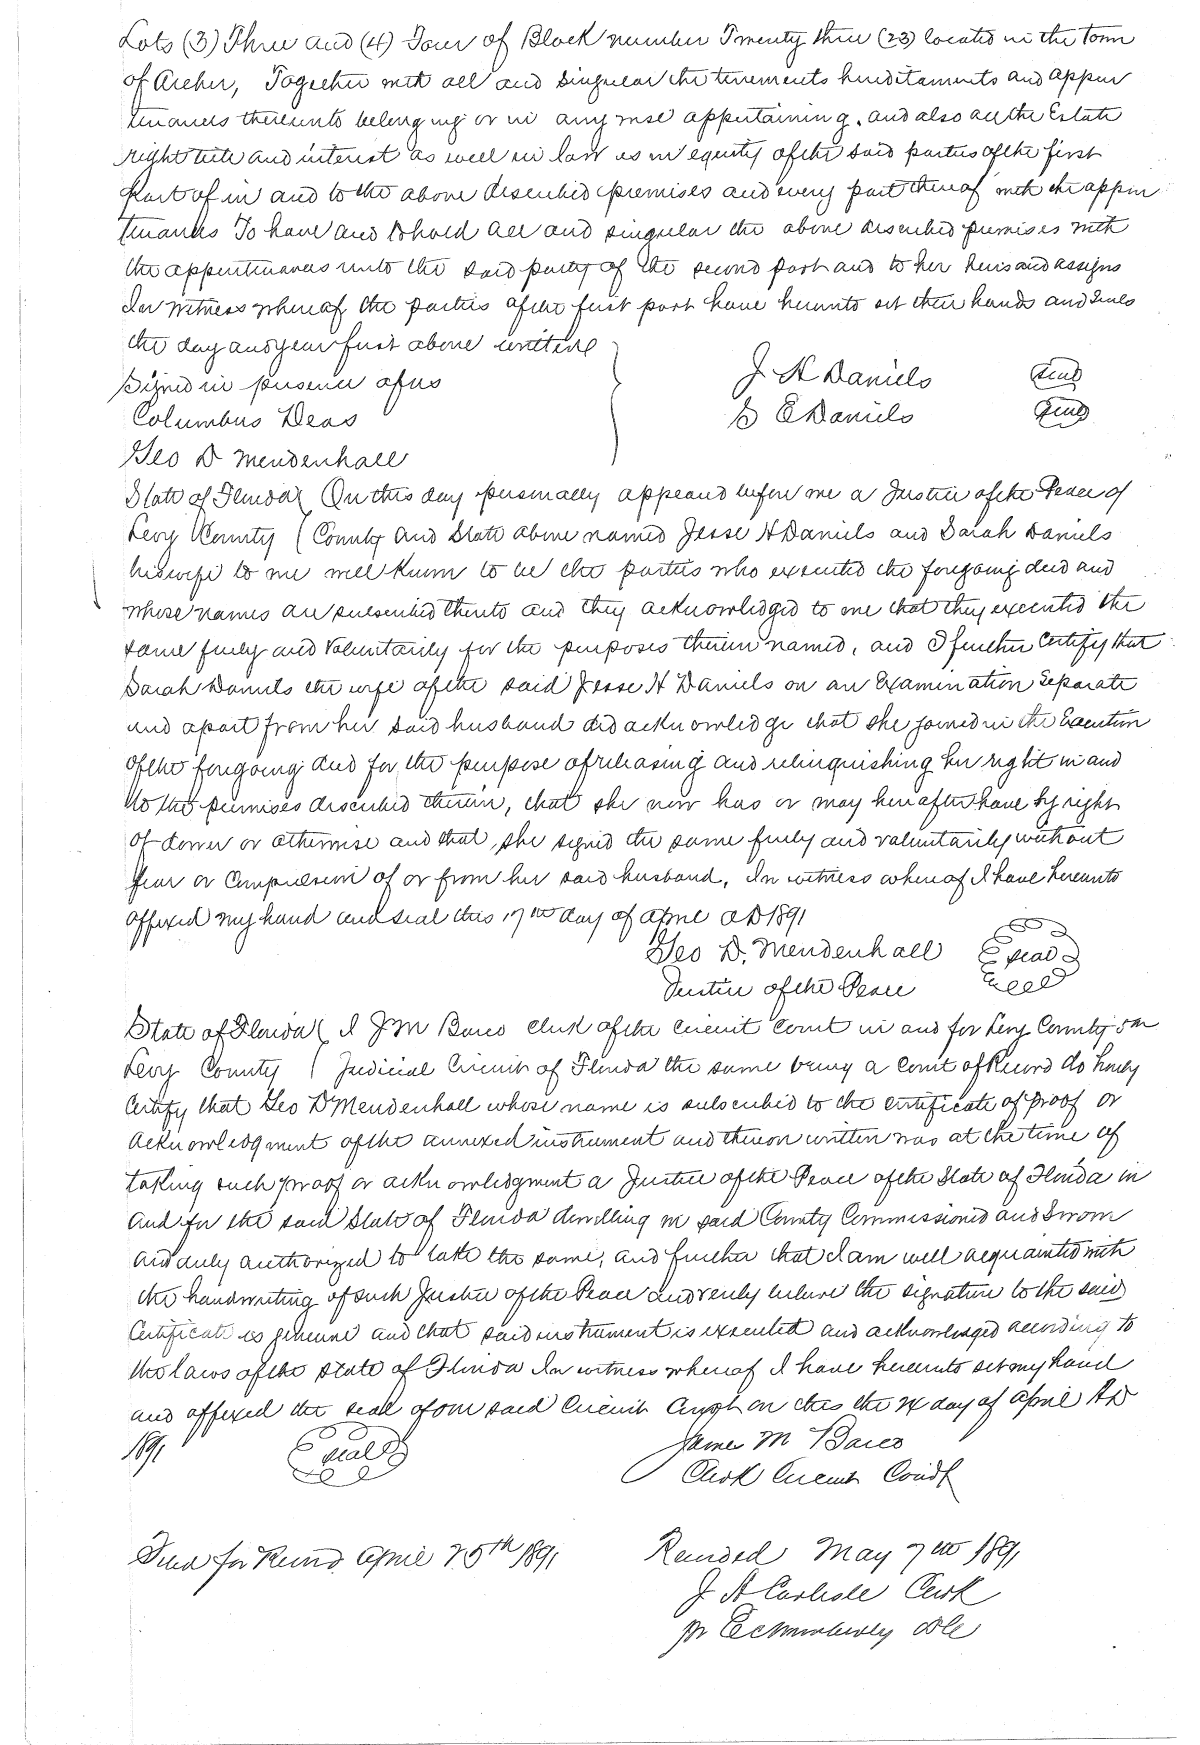 Lots (3) Three and (4) Four of Block number Twenty three (23) located in the Town
of Archer, Together with all and singular the tenements hereditaments and appur
tenances thereunto belonging or in any wise appertaining. and also all the Estate
right title and interest as well in law as in equity of the said parties of the first
Part of in and to the above described premises and every part thereof with the appur
tenances To have and to hold all and singular the above described premises with
the appurtenances unto the said party of the second part and to her heirs and assigns
In witness whereof the parties of the first part have hereunto set their hands and seals
the day and year first above written
Signed in presence of us
J H Daniels Seal
Columbus Deas
S E Daniels Seal
Geo D Mendenhall
State of Florida On this day personally appeared before me a Justice of the Peace of
Levy County County and State above named Jesse H Daniels and Sarah Daniels
his wife to me well known to be the parties who executed the foregoing deed and
whose names are subscribed thereto and they acknowledged to me that they executed the
same freely and voluntarily for the purposes therein named, and I further certify that
Sarah Daniels the wife of the said Jesse H Daniels on an Examination Separate
and apart from her said husband did acknowledge that she joined in the Execution
of the foregoing deed for the purpose of releasing and relinquishing her right in and
to the premises described therein, that she now has or may hereafter have by right
of dower or otherwise and that she signed the same freely and voluntarily without
fear or compulsion of or from her said husband, In witness whereof I have hereunto
affixed my hand and seal this 17th day of April AD 1891
Geo D. Mendenhall seal
Justice of the Peace
State of Florida I J M Barco Clerk of the Circuit Court in and for Levy County 5th
Levy County Judicial Circuit of Florida the same being a Court of Record do hereby
Certify that Geo D Mendenhall whose name is subscribed to the certificate of proof or
acknowledgment of the annexed instrument and thereon written was at the time of
taking such proof or acknowledgment a Justice of the Peace of the State of Florida in
and for the said State of Florida dwelling in said County Commissioned and Sworn
and duly authorized to take the same, and further that I am well acquainted with
the handwriting of such Justice of the Peace and verily believe the signature to the said
Certificate is genuine and that said instrument is executed and acknowledged according to
the laws of the State of Florida In witness whereof I have hereunto set my hand
and affixed the seal of our said Circuit Court on this the 24 day of April AD
1891 seal James M Barco
Clerk Circuit Court
Filed for Record April 25th 1891
Recorded May 7th 1891
J A Carlisle Clerk
pr